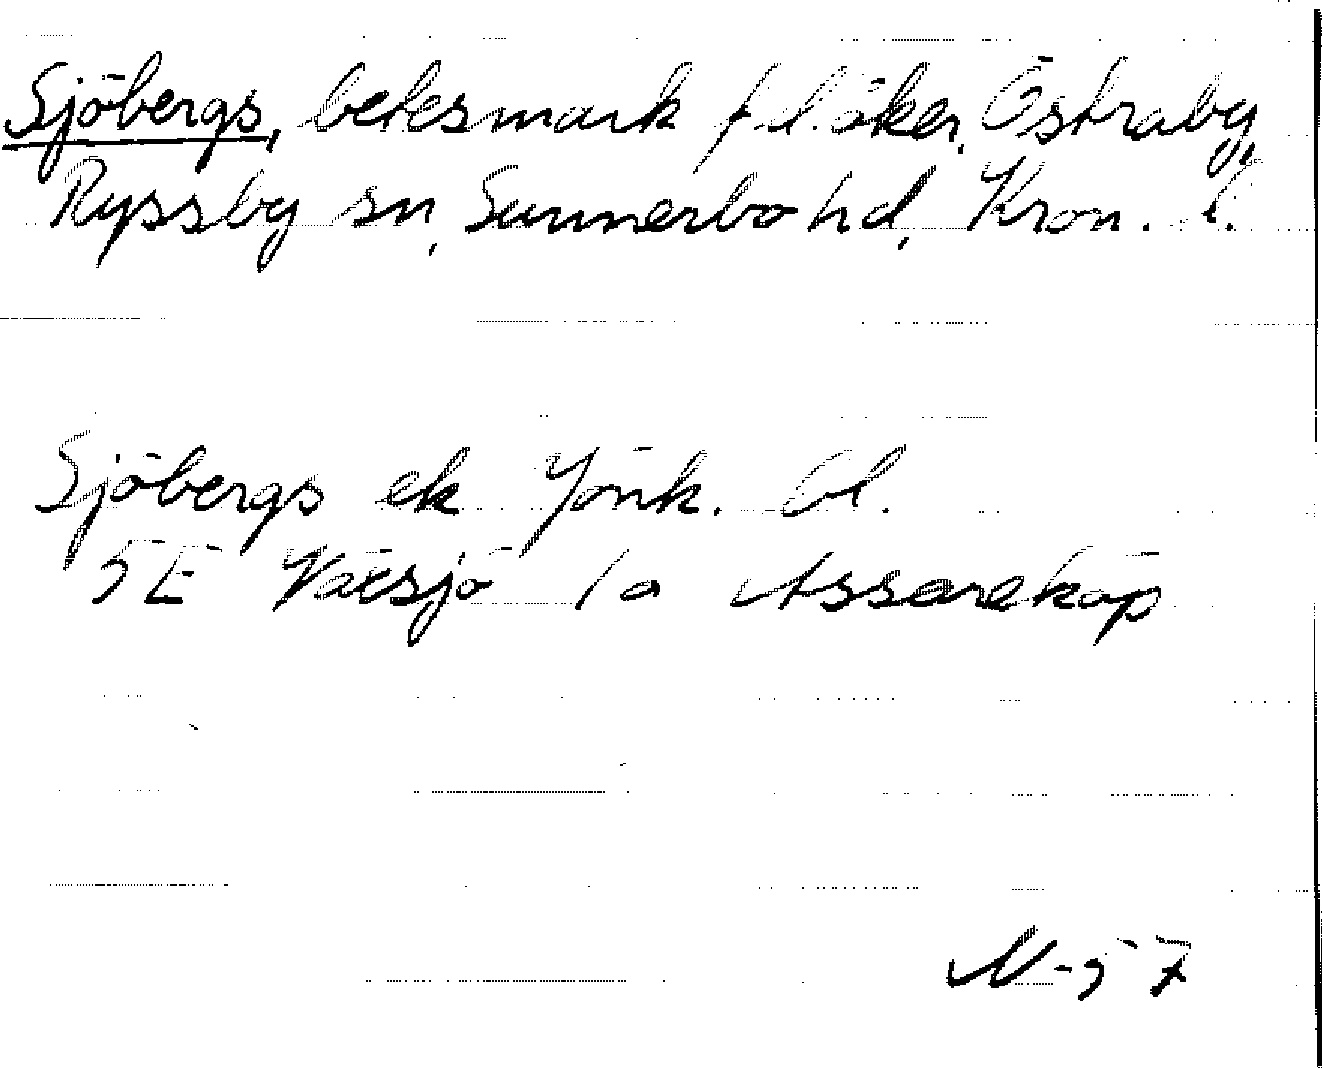 Sjöbergs, betesmark f.d. åker, Östraby,
Ryssby sn, Sunnerbo hd, Kron. l.
Sjöbergs ek Jönk. bl.
5E Växjö 1a Assarekåp
N-57